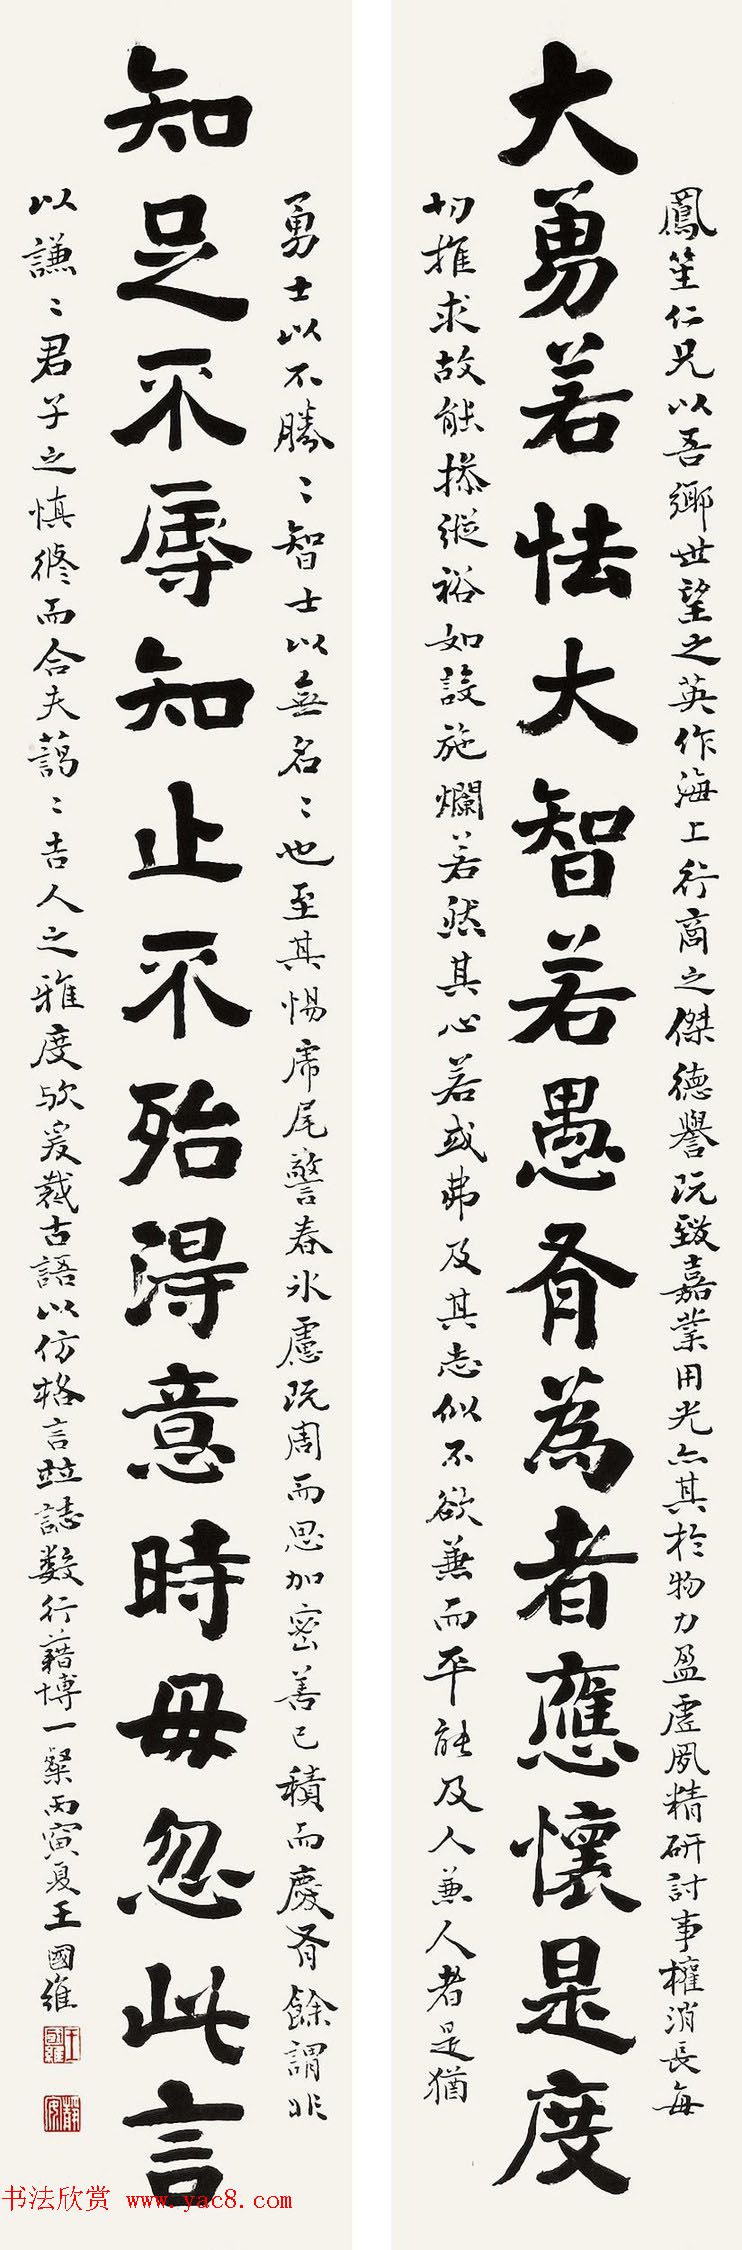 鳳笙仁兄以吾鄉世望之英作海上行商之傑德譽既致嘉業用光亦其於物力盈虛夙精研討事權消長每
大勇若怯大智若愚有為者應懷是度
切推求故能操縱裕如設施爛若然其心若或弗及其志似不欲兼而平能及人兼人者是猶
勇士以不勝〻智士以無名〻也至其惕虎尾警春冰慮既周而思加密善已積而慶有餘謂非
知足不辱知止不殆得意時毋忽此言
以謙〻君子之慎修而合夫藹〻吉人之雅度歟爰裁古語以仿格言並誌數行藉博一粲丙寅夏王國維
王國維
靜安
书法欣赏 www.yac8.com